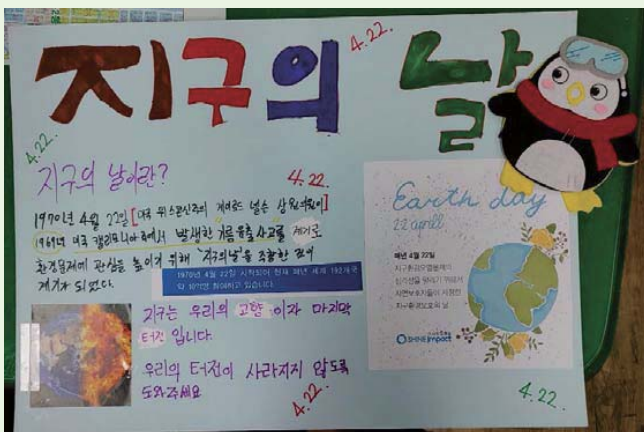 지구의 날
4.22.
4.22.
지구의 날이란?
4.22.
1970년 4월 22일 [미국 위스콘신주의 게이로드 넬슨 상원의원이]
1969년 미국 캘리포니아주에서 발생한 기름유출사고를 계기로
환경문제에 관심을 높이기 위해 "지구의날"을 주창한 것이
계기가 되었다.
1970년 4월 22일 시작되어 현재 매년 세계 192개국
약 10억명 참여하고 있습니다.
지구는 우리의 고향 이자 마지막
터전 입니다.
우리의 터전이 사라지지 않도록
도와주세요
4.22.
Earth day
22 april
매년 4월 22일
지구환경오염문제의
심각성을 알리기 위해서
자연보호자들이 제정한
지구환경보호의 날
SHINE impact
4.22.